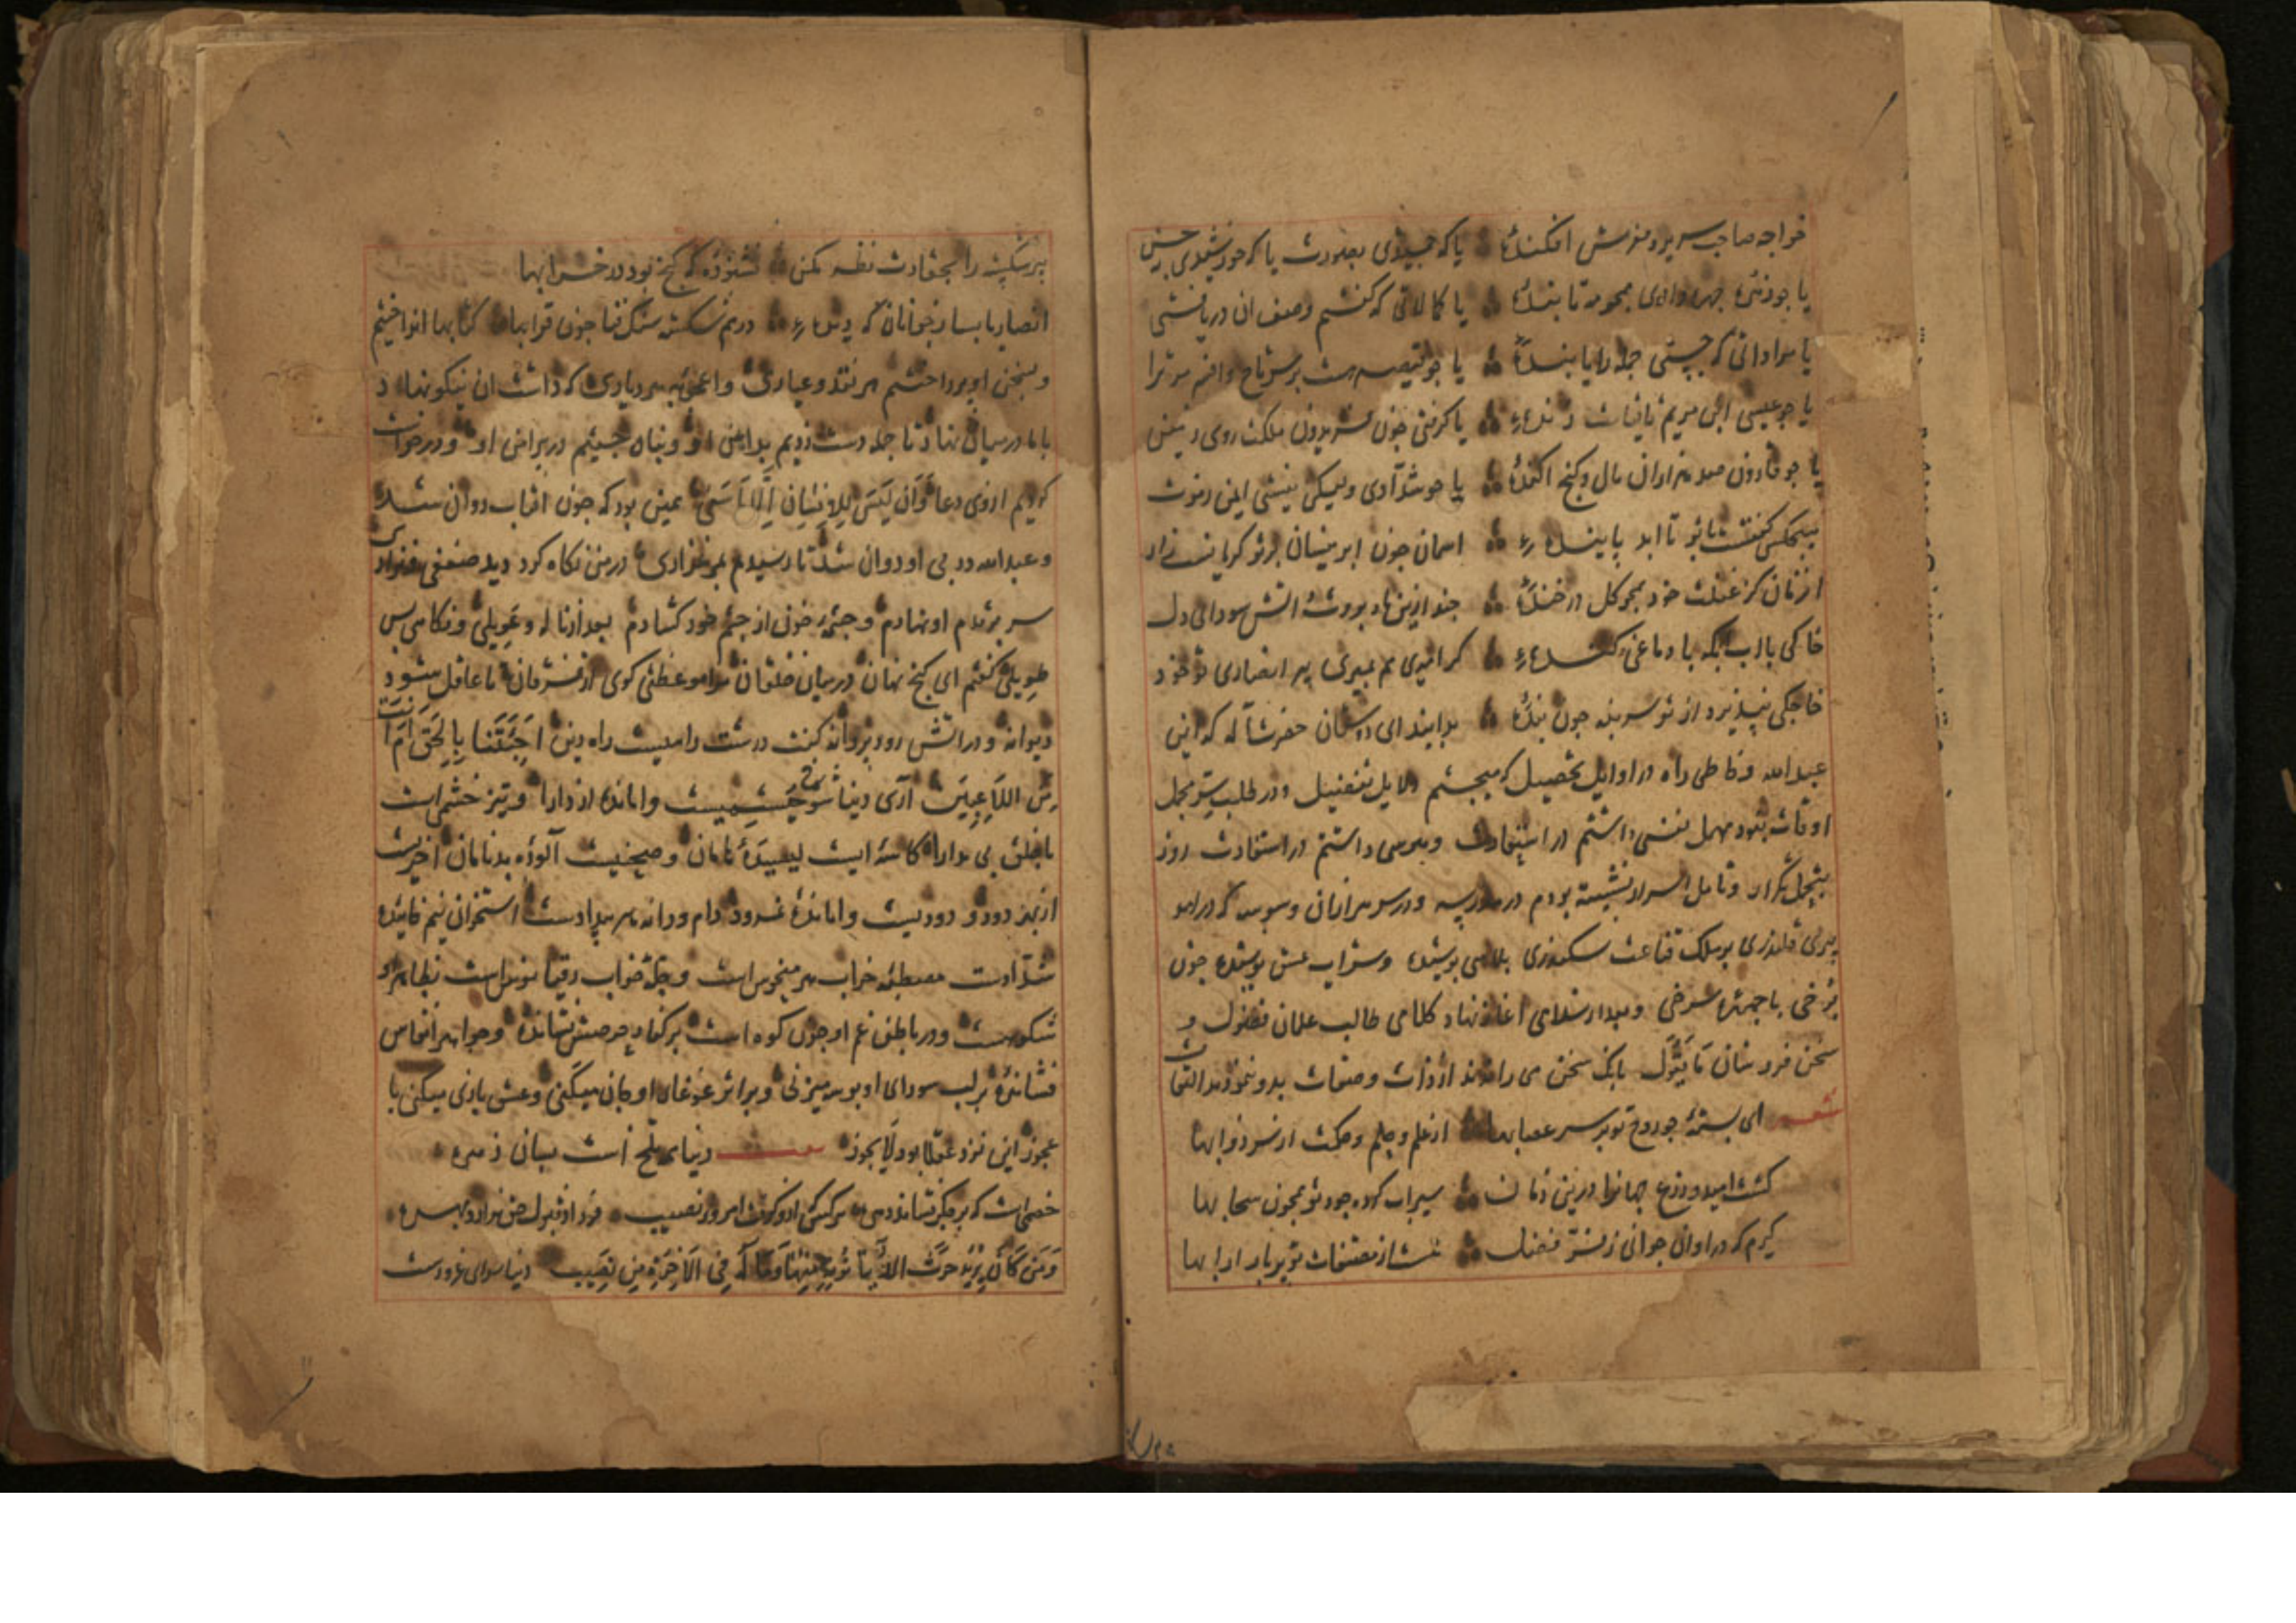 خواجه صاحب سریر و مفرش افکنده یا که جمشیدی بصورت یا که خورشیدی بحسن
یا جو ذره جهره داری همجو مه تابنده یا کمالاتی که گفتم وصف آن دریافتی
یا مراداتی که جستی جمله را یابنده یا جو قیصر هست بر سر تاج وافسر مر ترا
یا جو عیسی ابن مریم تا قیامت زنده یا گرفتی جون فریدون ملکت روی زمین
یا جو قارون صد هزاران مال و کنج اکنده یا جو شدادی ولیکن نیستی ایمن زموت
هیجکس گفتست با تو تا ابد پاینده اسمان جون ابر نیسان بر تو کریانست زار
از زمان کز غفلت خود همجو کل در خنده جند ازین باد بروت و اتش سودای دل
خاکی با اب بلکه باد ماغی کنده کر امیدی هم نمیری پیر انصاری تو خود
خاجکی نپذیرد از تو سر بنه جون بنده بدانید ای دوستان حضرت اله که این
عبد الله و خاطی راه در اوایل تحصیل که میجستم دلایل تفضیل و در طلب ستر مجمل
اوقات بود مهمل نفسی داشتم در استفادت وهوسی داشتم در استفادت روز
بتجمل تکرار و تامل اسرار نشسته بودم در مدرسه و در سر هزاران وسوسه که درامد
پیری قلندری بر ملک قناعت سکندری پلاسی پوشیده و شراب عشق نوشیده جون
برخی با جهره سرخی و بعد از سلام اغاز نهاد کلامی طالب علمان فضول و
سخن فروشان نا مقبول بانک سخن می راندند از ذات و صفات بدو ننمودند التفات
شعر ای بسته جود روح تو بر سر عصابها از علم و حلم و حکمت ازسر ذوابها
کشت امید و زرع جهانرا درین زمان سیراب کرده جود تو همجون سحابها
کیرم که در اوان جوانی زفر فضل هست از مصنفات تو پر بار ابوابها
پیر شکسته را بحقارت نظر مکن نشنوده که کنج بود در خرابها
انصاریا بسا رخ جانان که دیده درهم شکسته سنک فنا جون قرابها کتابها انداختیم
و سخن او پرداختیم هر نقد و عیاری و اغمی بهر دیاری که داشت ان نیکو نهاد
با ما در میان نهاد تا جمله دست زدیم بدامن او و پناه جستیم در پیراهن او و درخواست
کردیم ازوی دعا وَاَن لَیسَ لِلاِنسَانِ اِلّا مَا سَعَی همین بود که جون افتاب روان شد
و عبد الله در پی او دوان شد تا رسیدم بمرغزاری در من نکاه کرد دید ضعفی و نزاری
سر بر قدم او نهادم و جشمه خونی از جشم خود کشادم بعد از ناله و عویلی و نکاهی بس
طویلی گفتم ای کنج نهان در میان خلقان مرا موعظتی کوی از فرقان تا عاقل شود
دیوانه و در اتش رود پروانه کفت درست و راست راه دین اَجِئتَنا بِالحَقِّ اَم اَنتَ
مِنَ اللَاعِبِین آری دنیا شوخ جشمیست و امانده از دارا و تیز خشم است
با خلق بی مدارا کاسه ایست لیسیده نامان و صحنیست آلوده بدنامان اخریست
از بهر دو دو دودیست و امانده نمرود دام و دانه هر بیدادست استخوان نیم خائیده
شدادست مصطبه خراب هر منحوس است و جکه خواب دقیانوس است بظاهر
شکرست و در باطن غم او جون کوه است بر کنار حرصش نشانده و جواهر انفاس
فشانده بر لب سودای او بوسه میزنی و بر اثر غوغای او کان میکنی و عشق بازی میکنی با
عجوز این نزد عقلا بود لا یجوز شعر دنیای تلخ است بسان زهره
خصمی است که بر جکر نشانده دهره هر کس کی ازو کرفت امروز نصیب فردا ز قبول حق ندارد بهره
وَمَن کَانَ یُرِیدُ حَرثَ الدُنیا نُؤتِهِ مِنهَا وَمَا لَهُ فِی الاَخِرَةِ مِن نَصِیب دنیا سرای غرورست